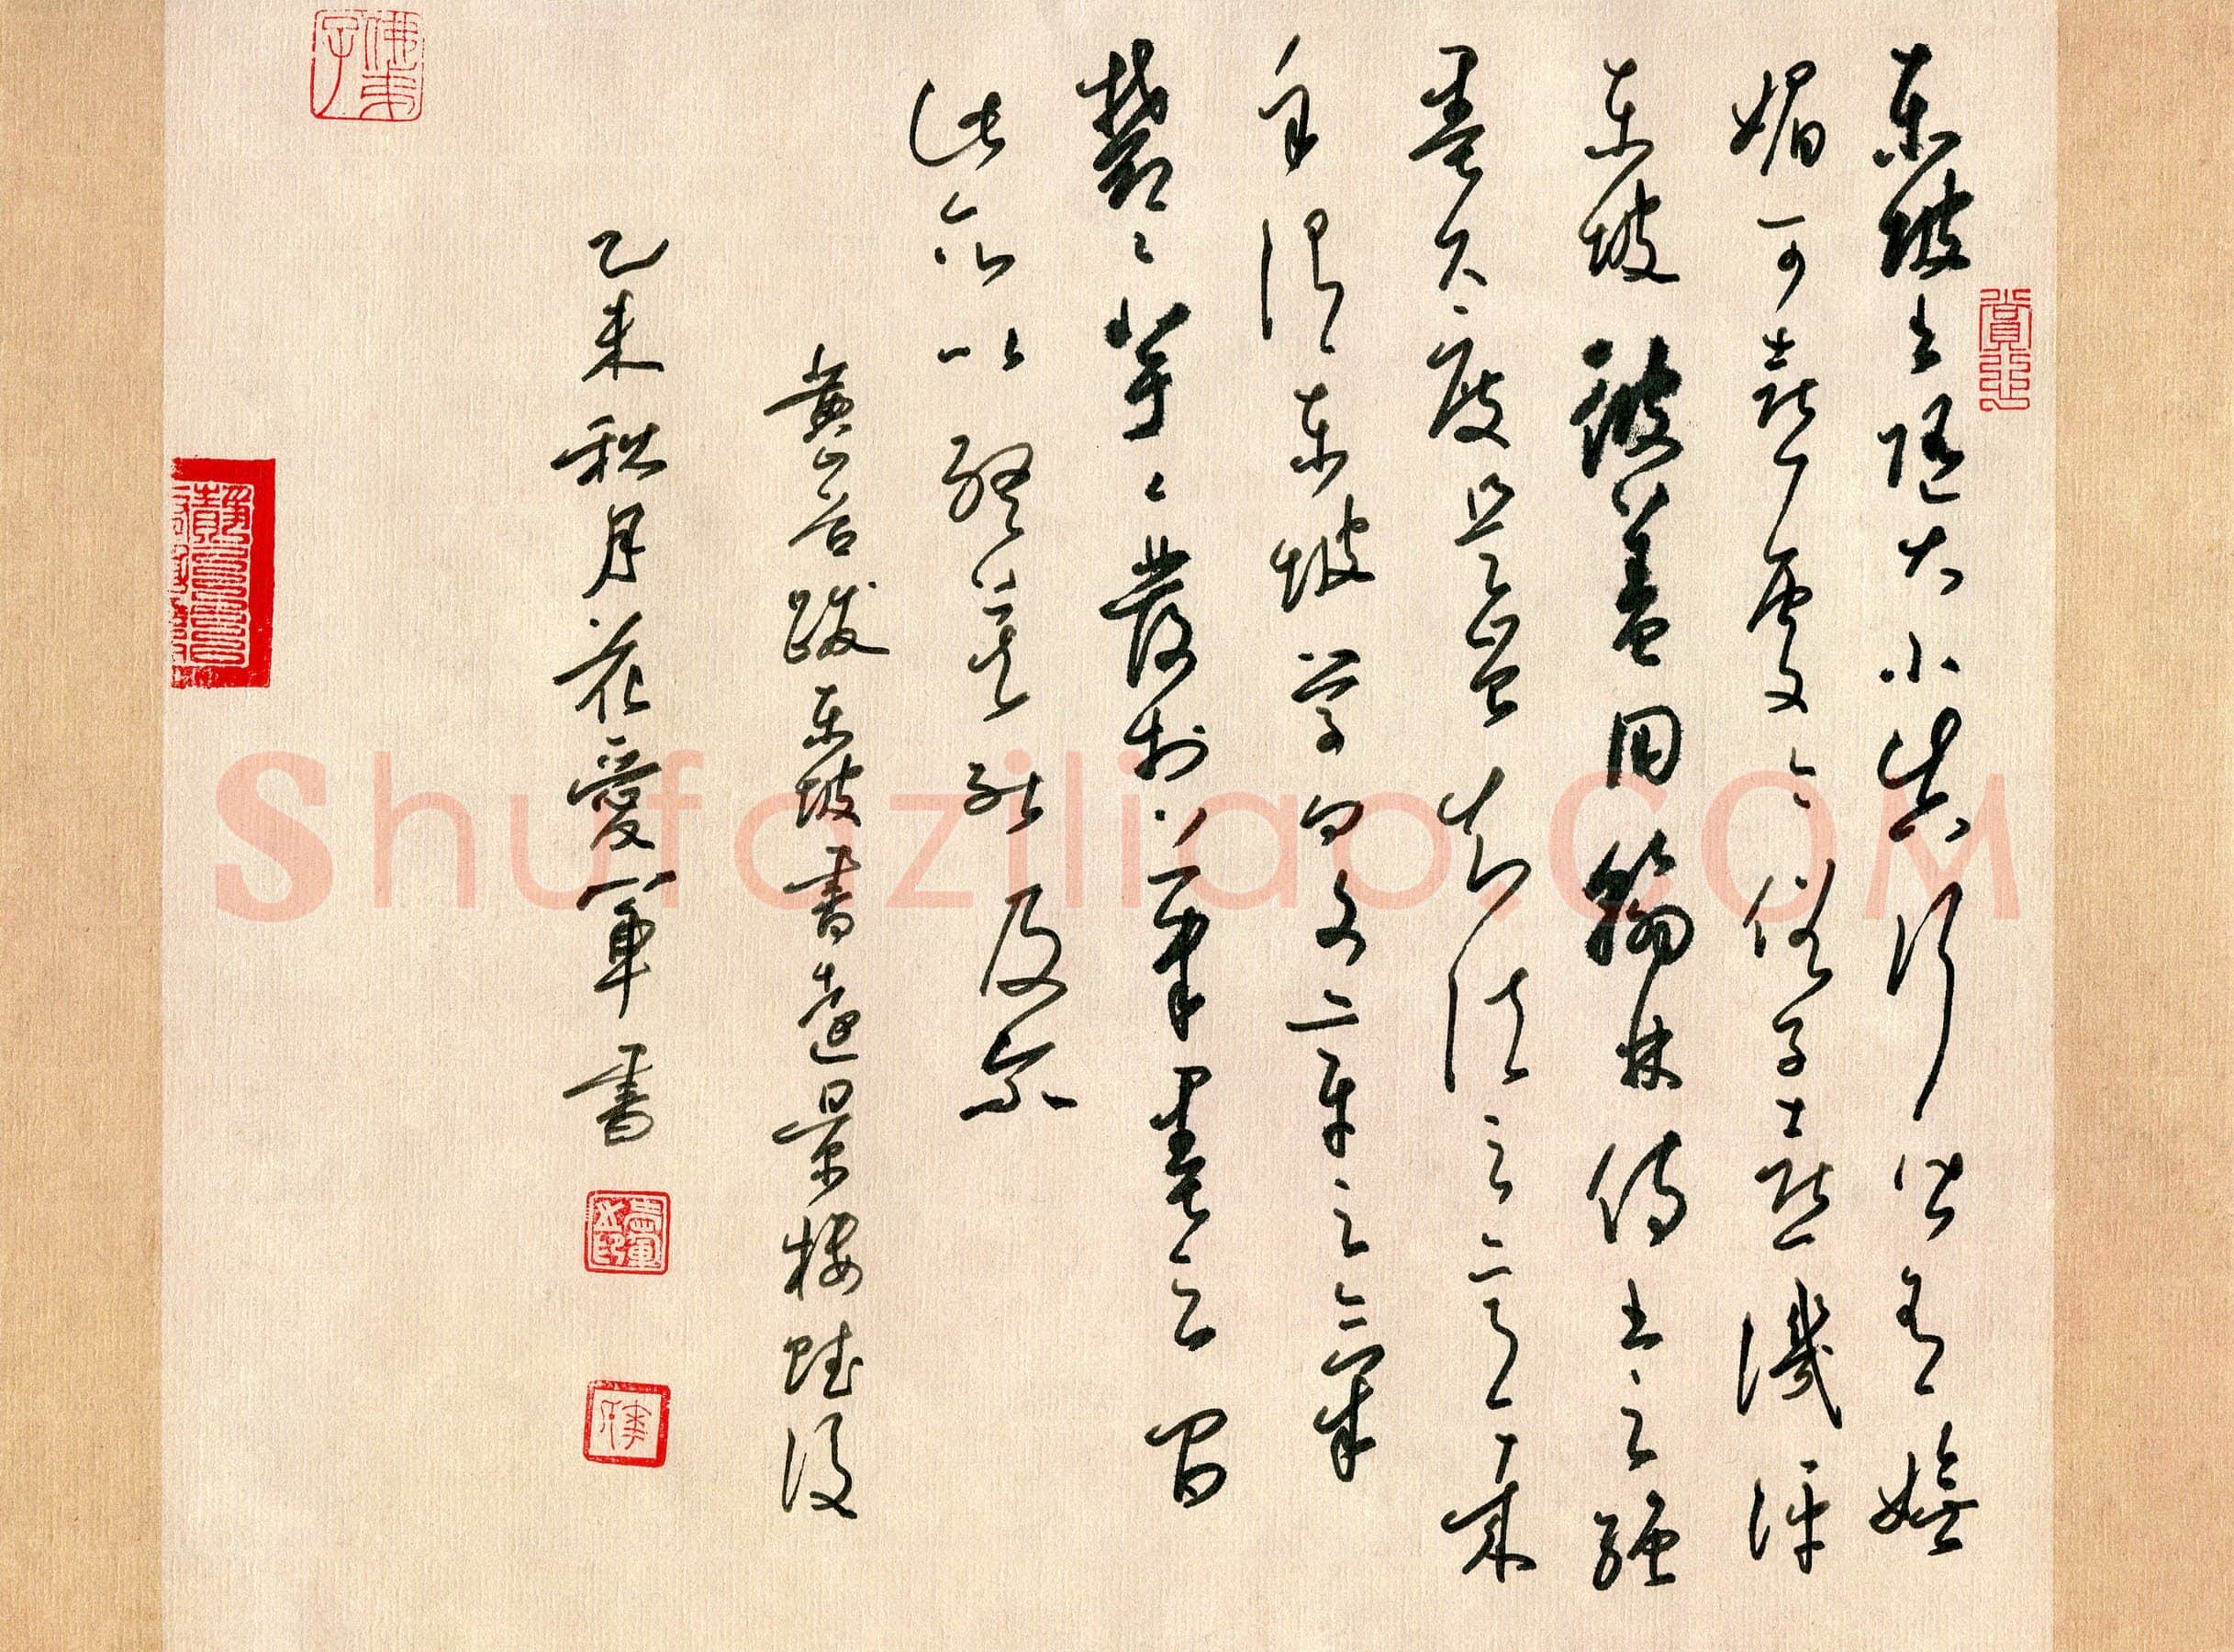 東坡书随大小真行皆有嫵
媚可喜處今俗子喜譏評
东坡彼蓋用翰林侍书之繩
墨尺度是豈知法之意哉
余谓东坡学问文章之氣
鬱鬱芊芊發於筆墨之間
此所以終莫能及尔
黄山谷跋东坡書遠景楼賦後
乙未秋月花愛軍書
Shufaziliao.COM